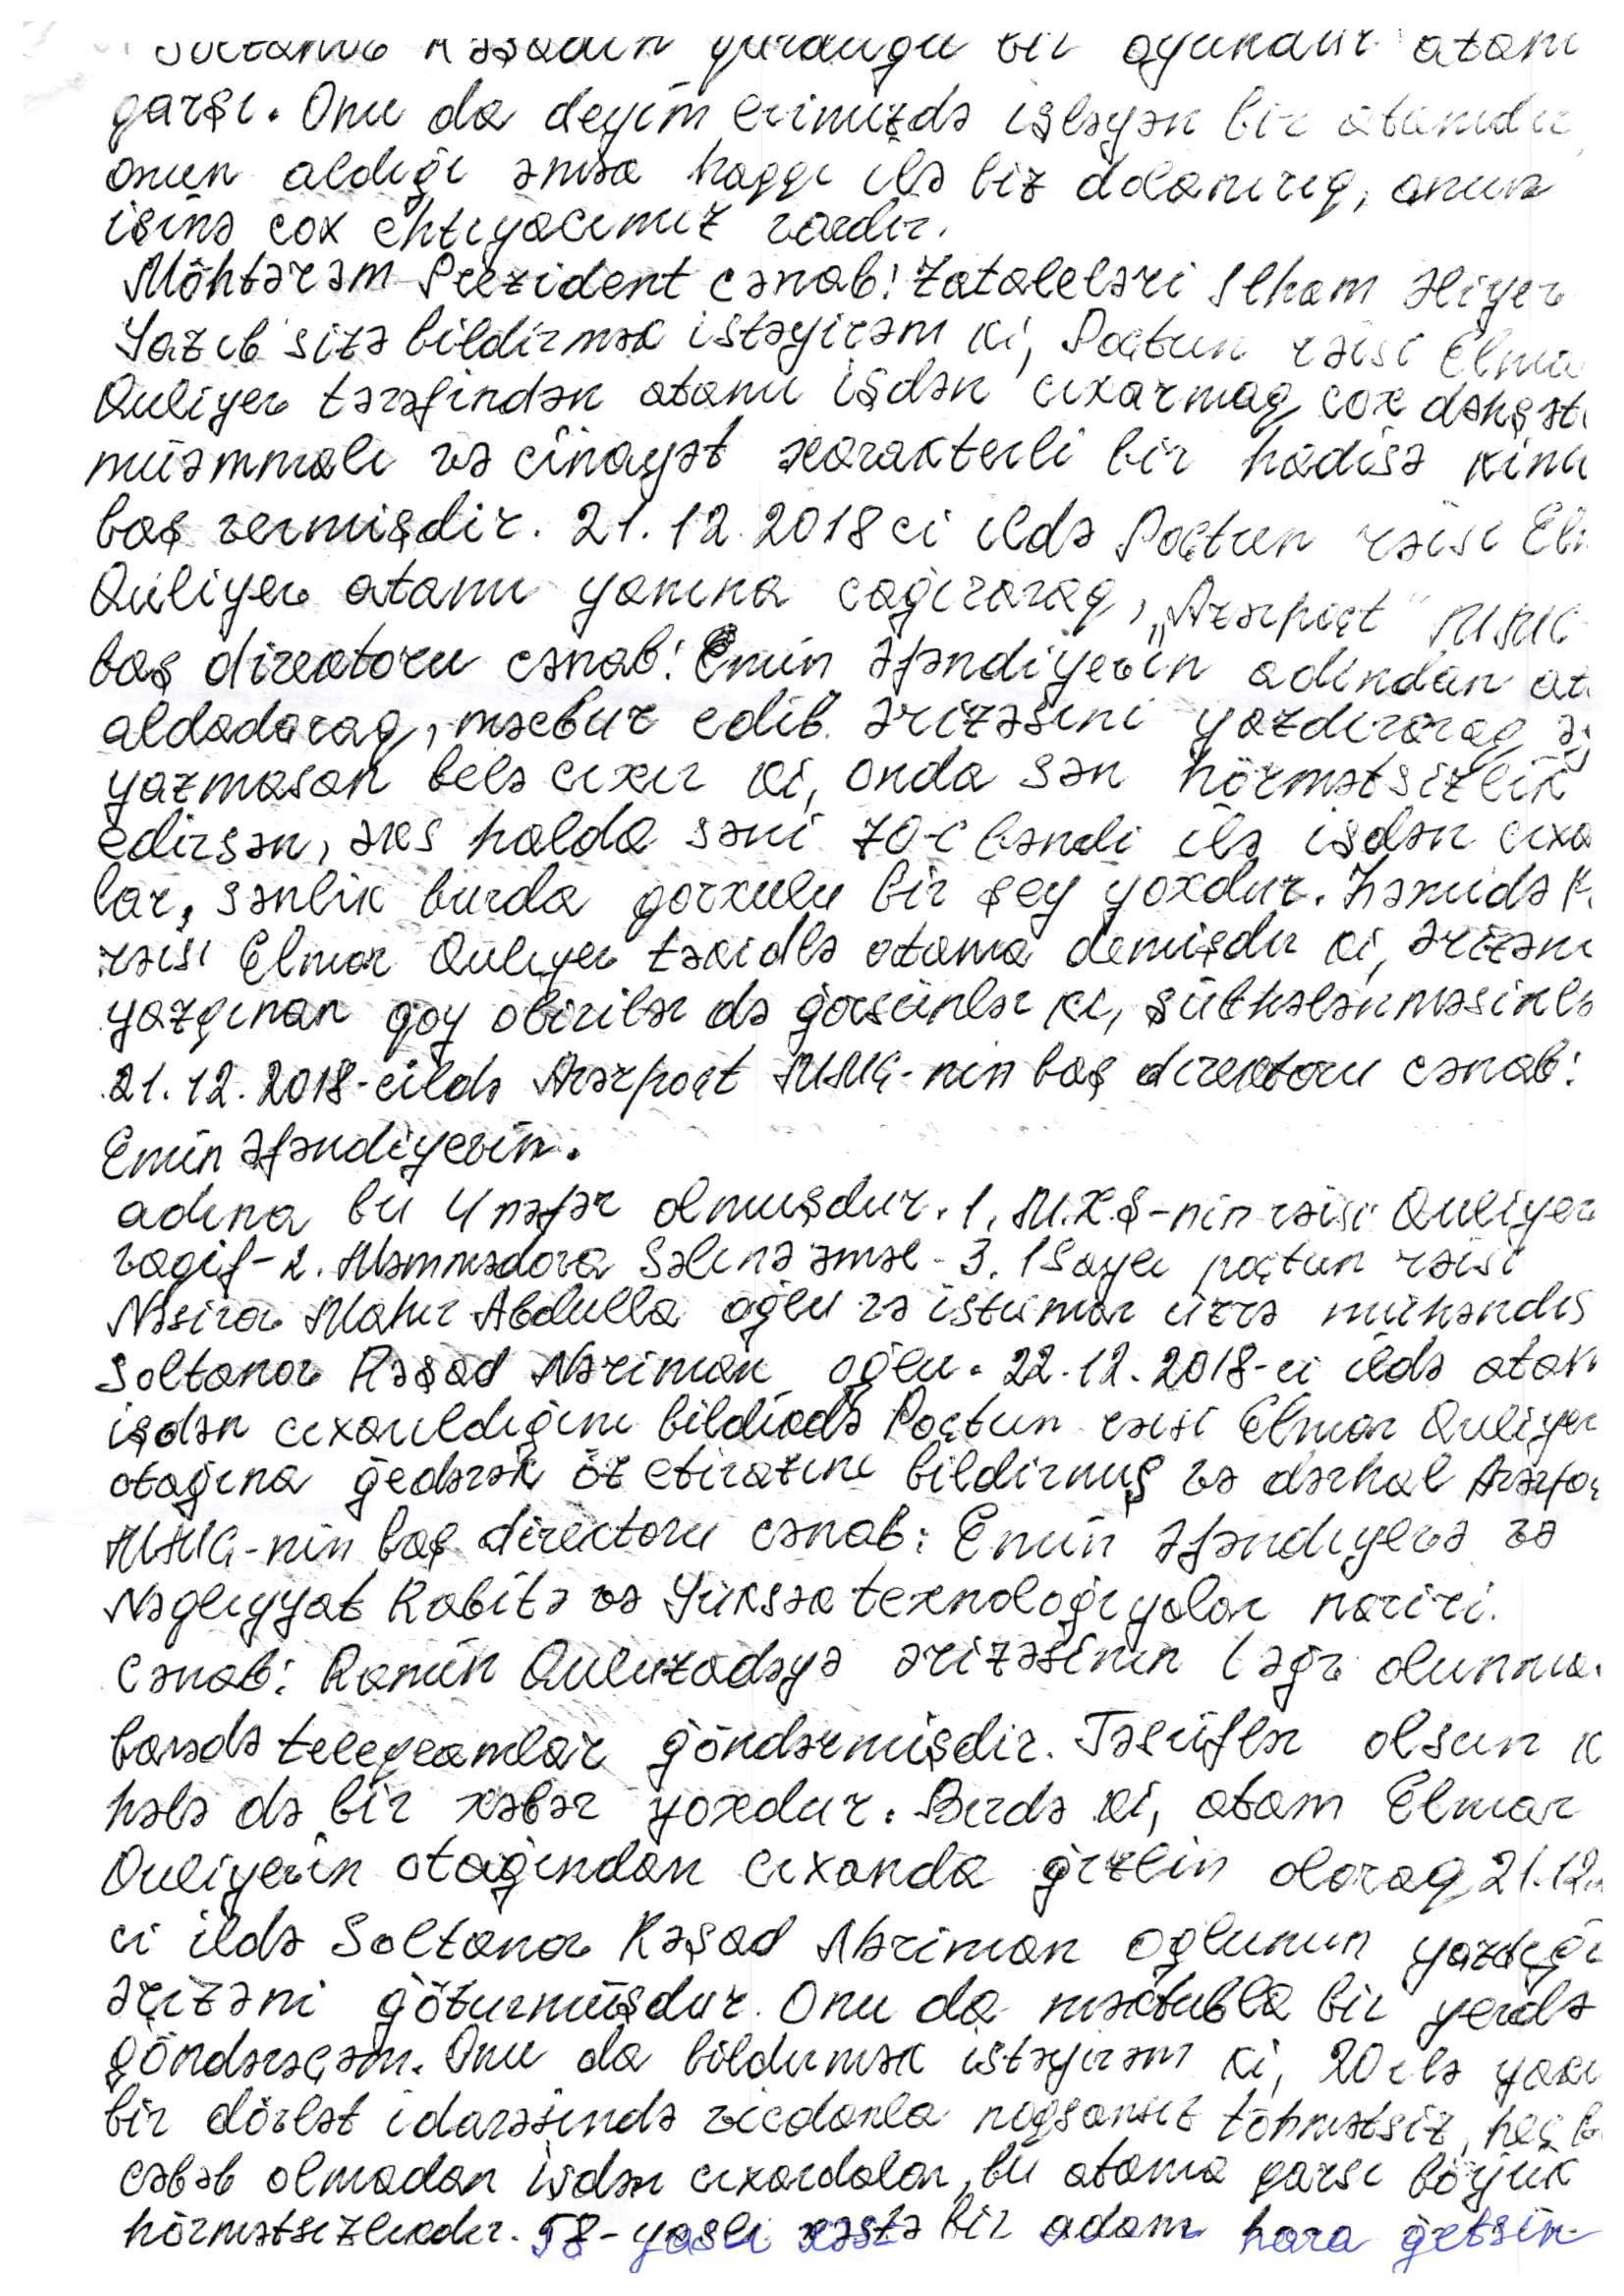 Soltanov Rəşadın qurduğu bir oyundur atam
qarşı. Onu da deyim evimizdə işləyən bir atamdır
onun aldığı əmək haqqı ilə biz dolanırıq, onun
işinə cox ehtiyacımız vardır.
Möhtərəm Prezident cənab! Zataleləri Ilham Əliyev
Yazıb sizə bildirmək istəyirəm ki, Poçtun rəisi Elma
Quliyev tərəfindən atamı işdən cıxarmaq cox dəhşət
müəmmalı və cinayət xarakterli bir hadisə kimi
baş vermişdir. 21.12.2018 ci ildə Poçtun rəisi El
Quliyev atamı yanına cağıraraq, „Azərpoçt" MMC
baş direktoru cənab! Emin Əfəndiyevin adından at
aldadaraq, məcbur edib ərizəsini yazdıraraq əg
yazmasan belə cıxır ki, onda sən hörmətsizlik
edirsən, əks halda səni 70-c bəndi ilə işdən cıxa
lar, sənlik burda qorxulu bir şey yoxdur. Həmidə P.
rəisi Elmar Quliyev təkidlə atama demişdir ki, ərizəni
yazgınan qoy obirilər də görsünlər ki, şübhələnməsinlə
21.12.2018-cildə Azərpoçt MMC-nin baş direktoru cənab!
Emin Əfəndiyevin.
adına bu 4 nəfər olmuşdur. 1. M.X.Ş-nin rəisi Quliyev
vaqif-2. Məmmədova Səlinə əməl-3. 1 Saylı poçtun rəisi
Nəsirov Mahir Abdulla oğlu və istismar üzrə mühəndis
Soltanov Rəşad Nəriman oğlu. 22.12.2018-ci ildə atam
işdən cıxarıldığını bildikdə Poçtun rəisi Elmar Quliyev
otağına gedərək öz etirazını bildirmiş və dərhal Azərpoç
MMC-nin baş direktoru cənab: Emin Əfəndiyevə və
Nəqliyyat Rabitə və Yüksək texnologiyalar naziri.
Cənab: Ramin Quluzadəyə ərizəsinin ləğv olunma
barədə teleqramlar göndərmişdir. Təsüflər olsun k
hələ də bir xəbər yoxdur. Birdə ki, atam Elmar
Quliyevin otağından cıxanda gizlin olaraq 21.12.
ci ildə Soltanov Rəşad Nəriman oğlunun yazdığı
ərizəni götürmüşdür. Onu da məktubla bir yerdə
göndərəçəm. Onu da bildirmək istəyirəm ki, 20 ilə yaxı
bir dövlət idarəsində vicdanla noqsansız töhmətsiz, heç b
cəbəb olmadan işdən cıxardalar, bu atama qarşı böyük
hörmətsizlikdir. 58-yaşlı xəstə bir adam hara getsin